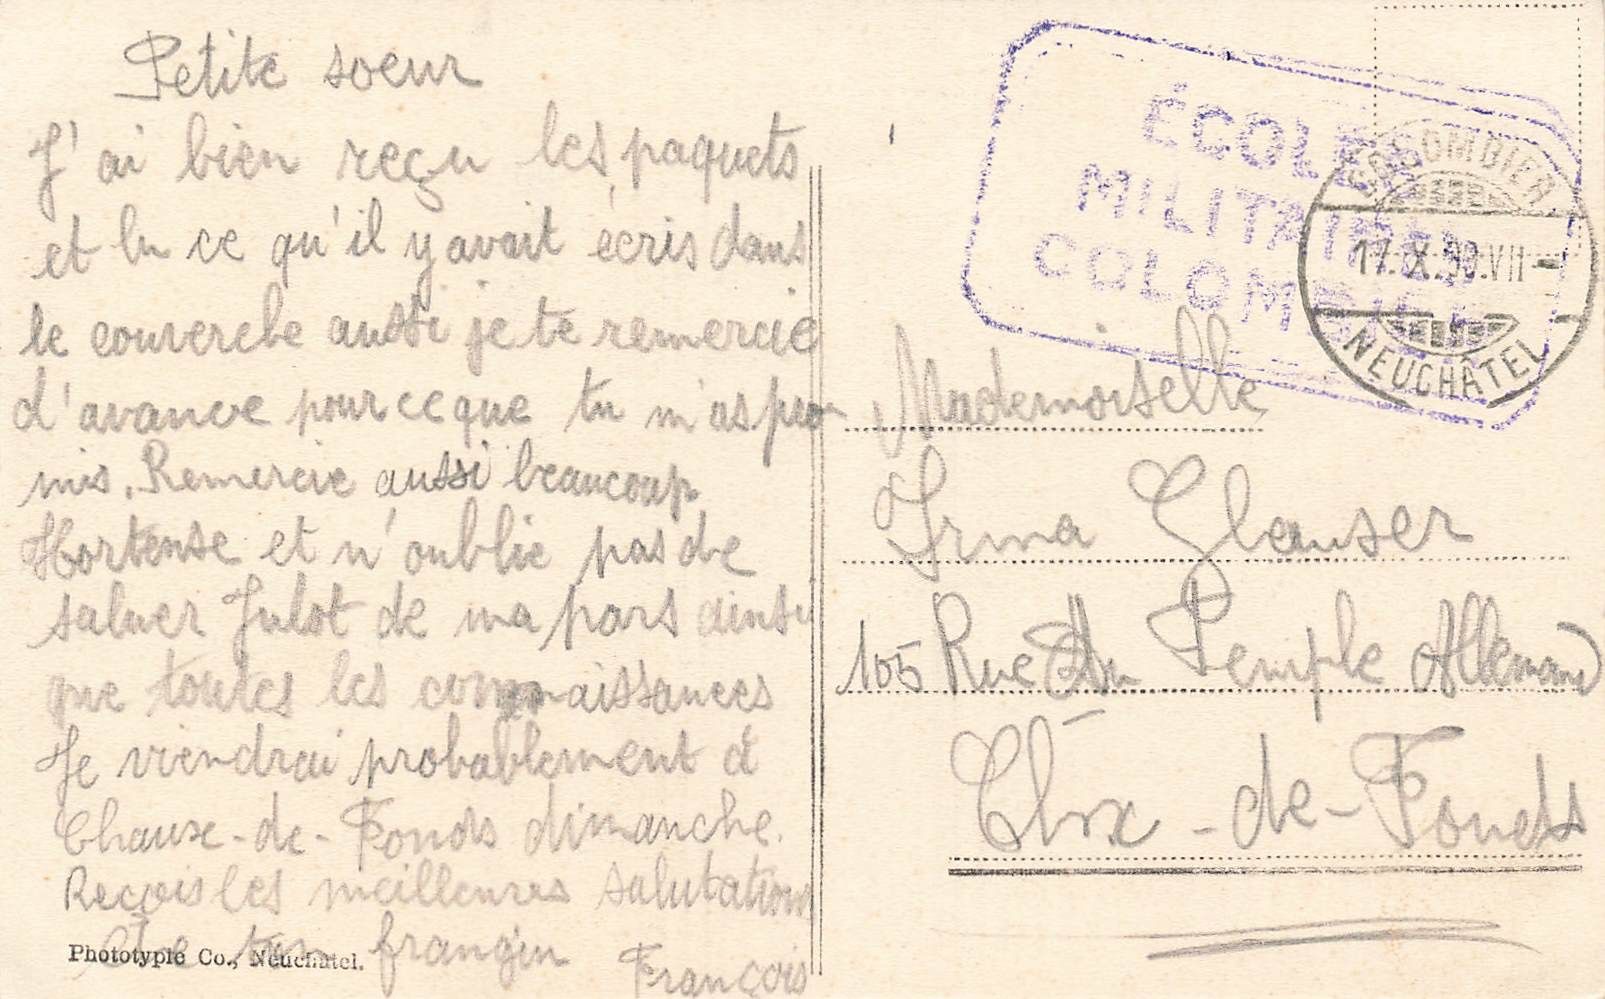 Petite soeur
J'ai bien reçu les paquets
et lu ce qu'il y avait écris dans
le couvercle aussi je te remercie
d'avance pour ce que tu m'as pro
mis. Remercie aussi beaucoup
Hortense et n'oublie pas de
saluer Julot de ma pars ainsi
que toutes les connaissances
Je viendrai probablement à
Chaux-de-Fonds dimanche.
Reçois les meilleures salutations
de ton frangin
François
Phototypie Co., Neuchâtel.
ÉCOLE
MILITAIRE
COLOMBIER
COLOMBIER
VII
NEUCHÂTEL
Mademoiselle
Irma Glauser
105 Rue du Temple Allemand
Chx-de-Fonds